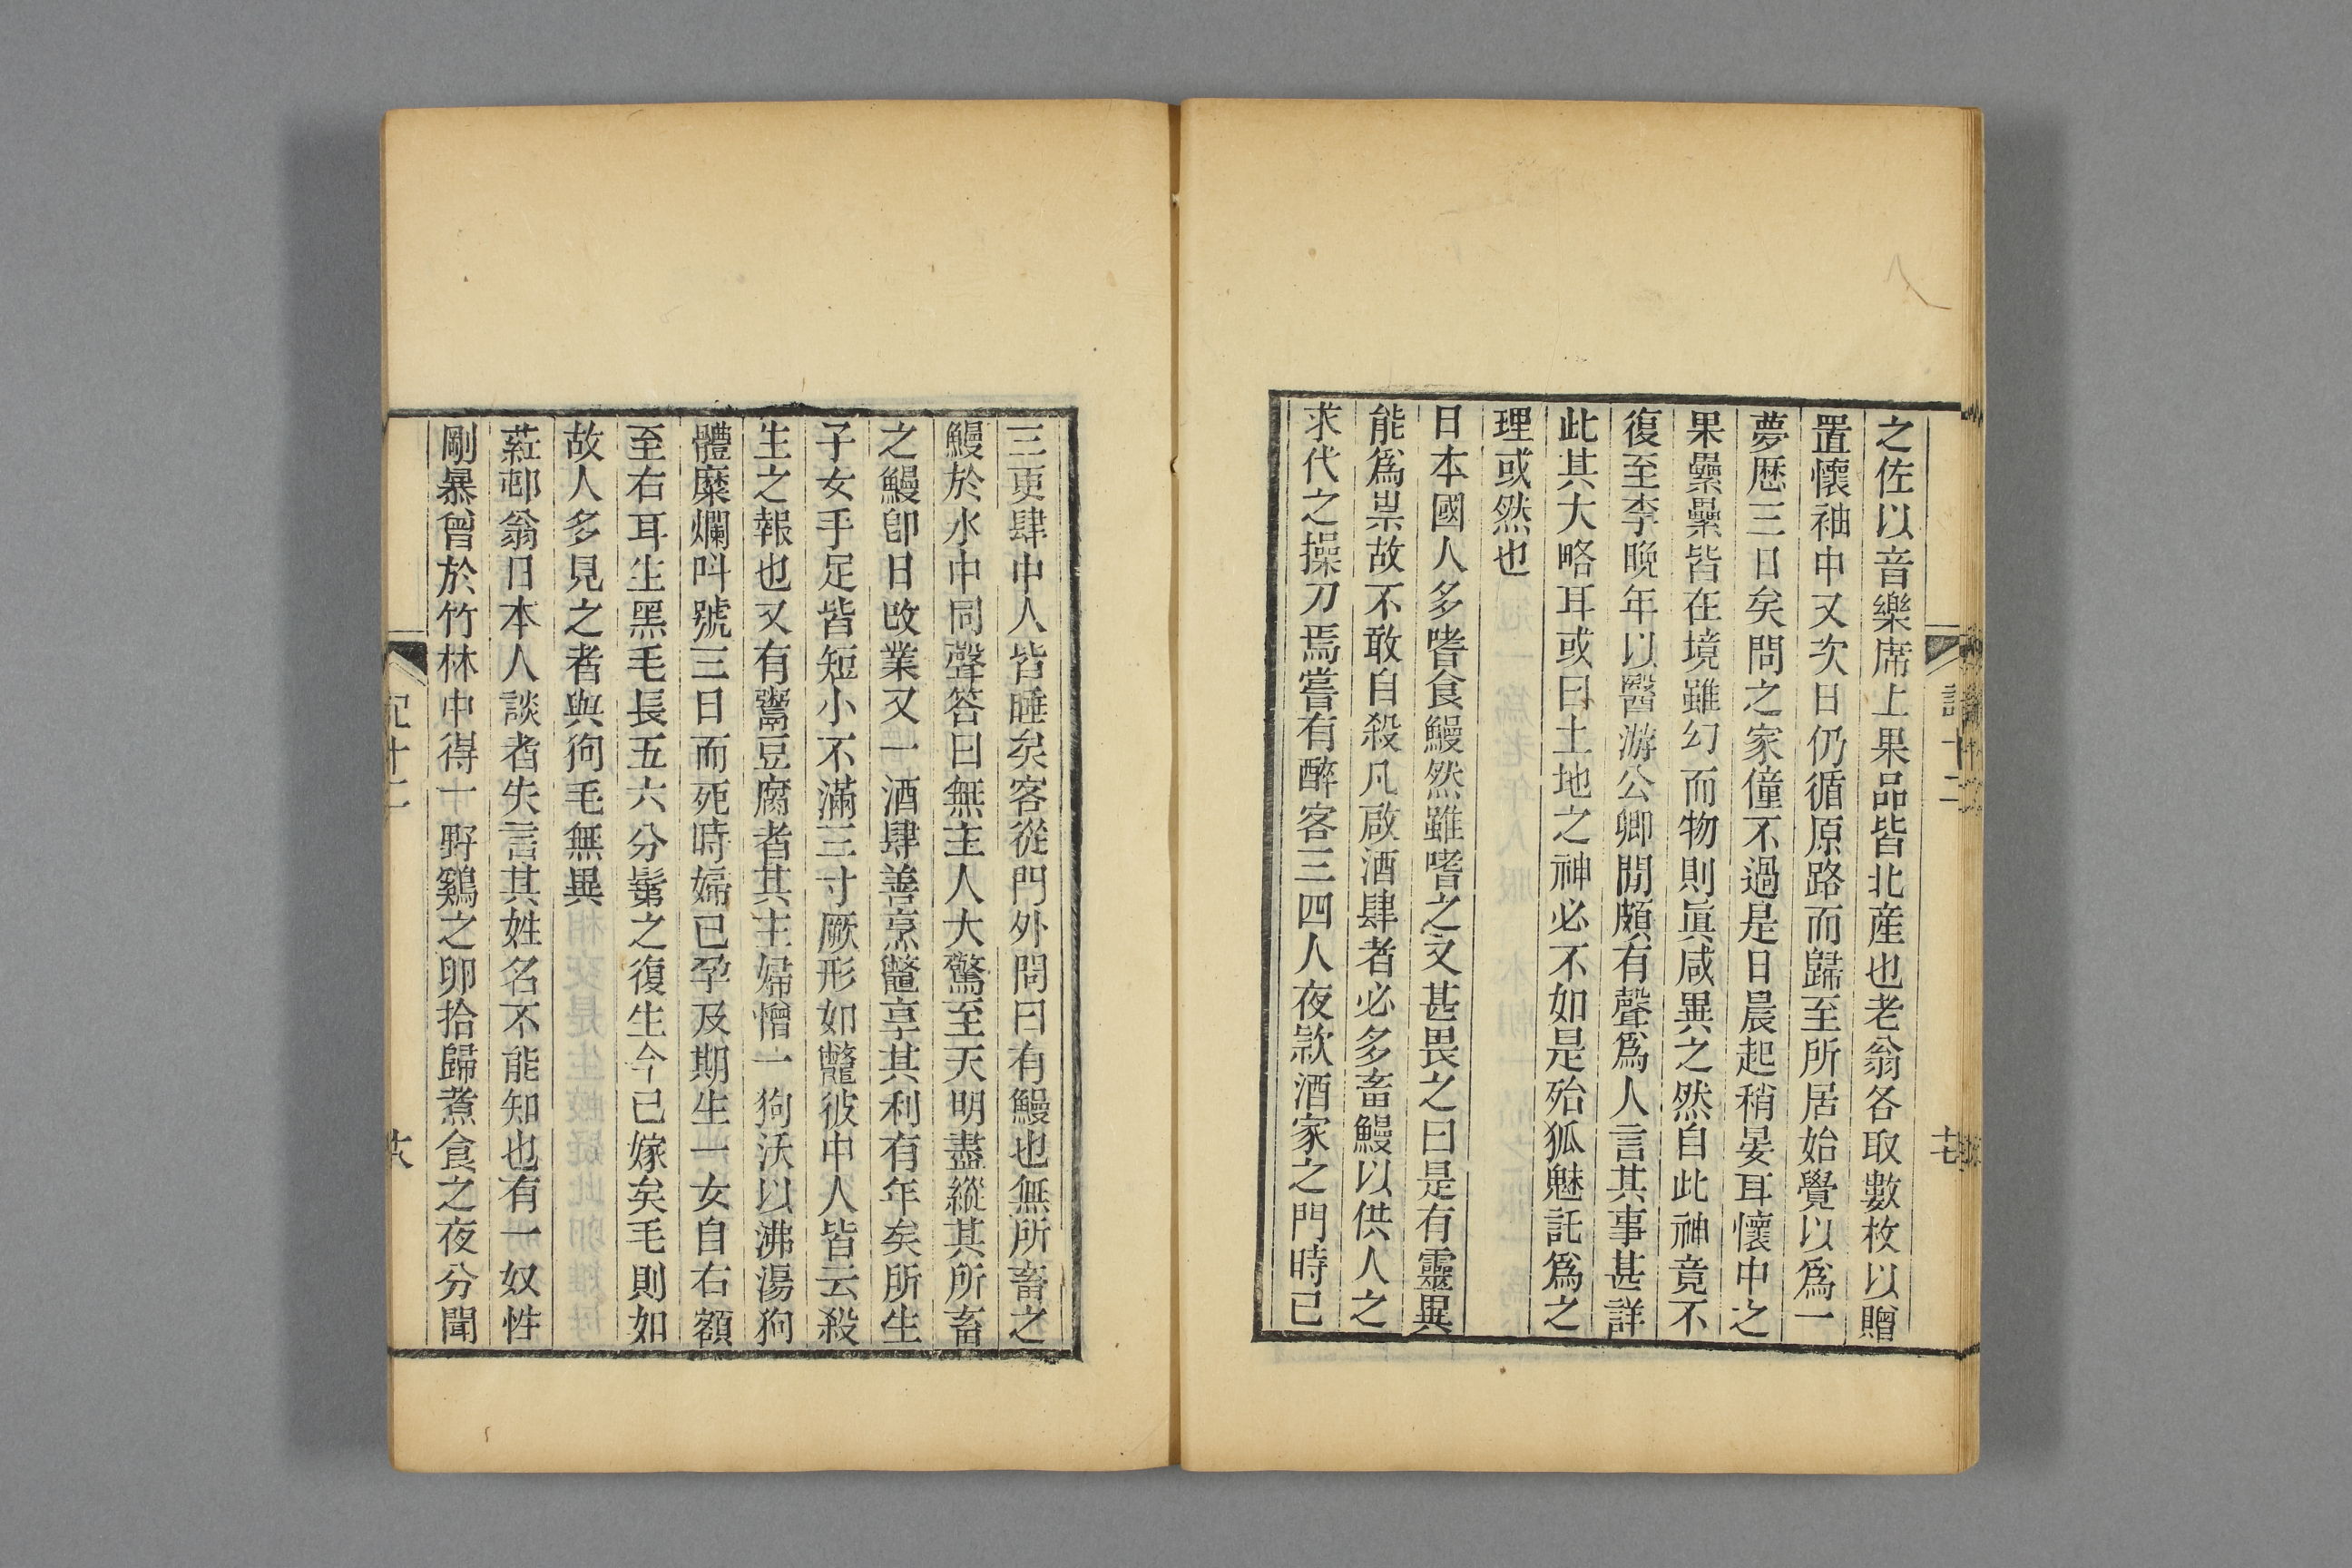 之佐以音樂席上果品皆北産也老翁各取數枚以贈
置懷袖中又次日仍循原路而歸至所居始覺以爲一
夢歷三日矣問之家僮不過是日晨起稍晏耳懷中之
果纍纍皆在境雖幻而物則眞咸異之然自此神竟不
復至李晚年以醫游公卿閒頗有聲爲人言其事甚詳
此其大略耳或曰土地之神必不如是殆狐魅託爲之
理或然也
日本國人多嗜食鰻然雖嗜之又甚畏之曰是有靈異
能爲祟故不敢自殺凡啟酒肆者必多畜鰻以供人之
求代之操刀焉嘗有醉客三四人夜款酒家之門時已
三更肆中人皆睡矣客從門外問曰有鰻也無所畜之
鰻於水中同聲答曰無主人大驚至天明盡縱其所畜
之鰻卽日改業又一酒肆善烹鼈享其利有年矣所生
子女手足皆短小不滿三寸厥形如鼈彼中人皆云殺
生之報也又有鬻豆腐者其主婦憎一狗沃以沸湯狗
體糜爛呌號三日而死時婦已孕及期生一女自右額
至右耳生黑毛長五六分鬀之復生今已嫁矣毛則如
故人多見之者與狗毛無異
蕋邨翁日本人談者失言其姓名不能知也有一奴性
剛暴曾於竹林中得一野鷄之卵拾歸煮食之夜分聞
記十二